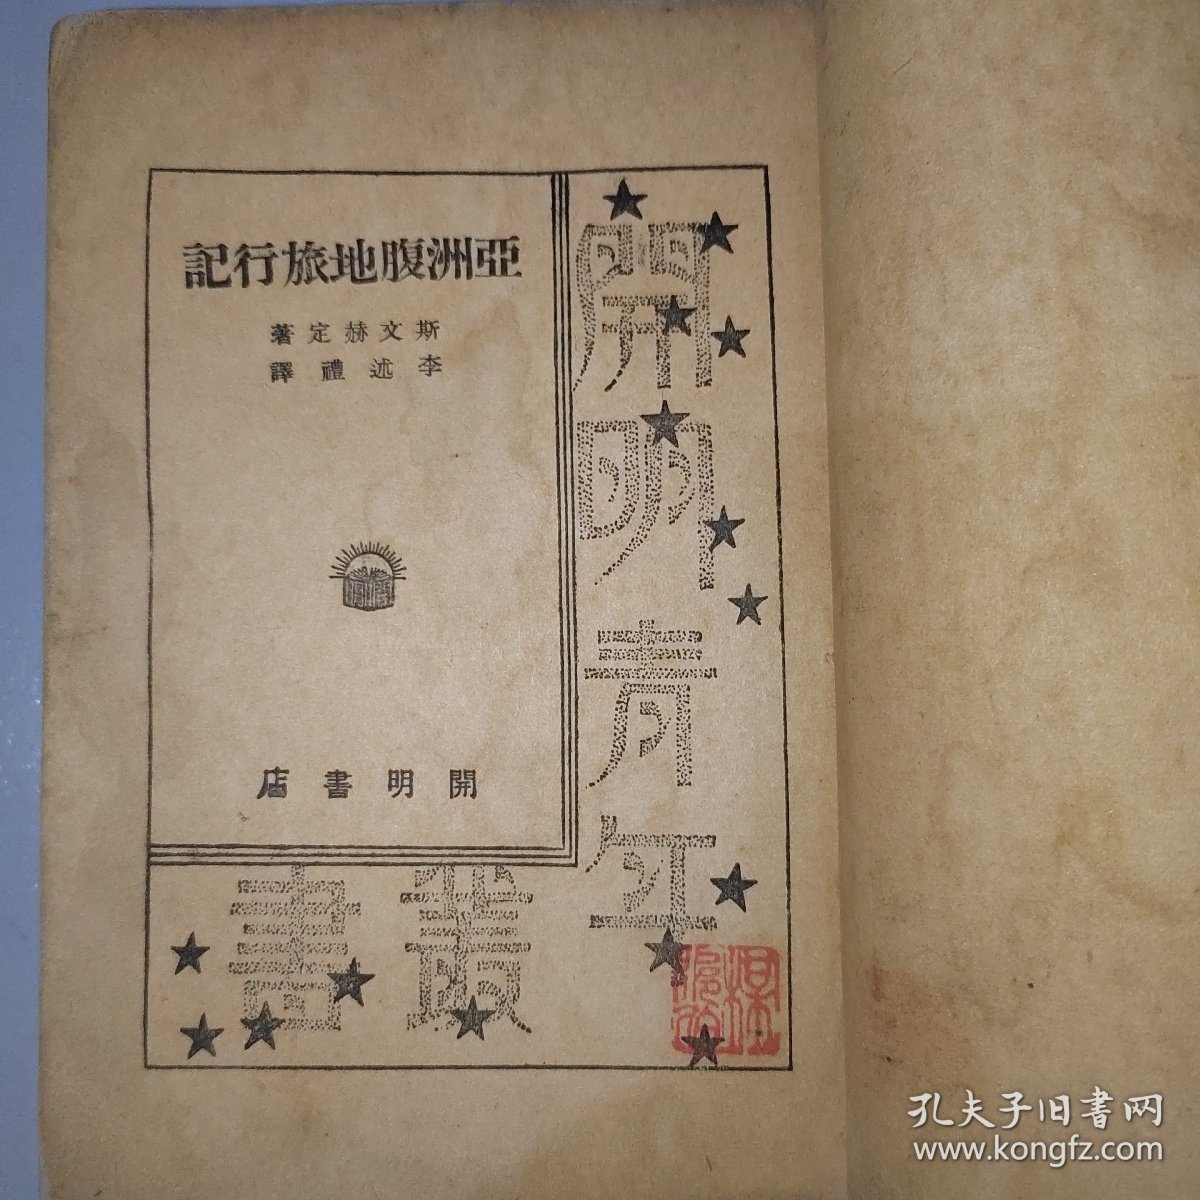 亞洲腹地旅行記
斯文赫定著
李述禮譯
開明書店
開明青年叢書
孔夫子旧书网
www.kongfz.com